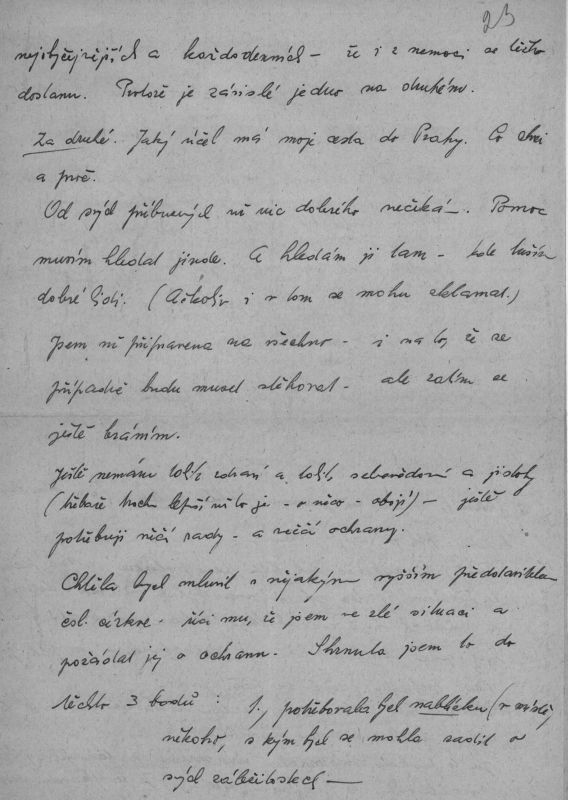 23
nejobyčejnějších a každodenních - že i z nemoci se těžko
dostanu. Protože je závislé jedno na druhém.
Za druhé. Jaký účel má moje cesta do Prahy. Co chci
a proč.
Od svých příbuzných už nic dobrého nečekám. Pomoc
musím hledat jinde. A hledám ji tam - kde tuším
dobré lidi. (Ačkoliv i v tom se mohu zklamat.)
Jsem už připravena na všechno - i na to, že ze
případně budu muset - ale zatím se
ještě bráním.
Ještě nemám tolik zdraví a tolik sebevědomí a jistoty
(třebaže trochu lepší už to je - o něco - obojí) - ještě
potřebuji něčí rady - a něčí ochrany.
Chtěla bych mluvit s nějakým vyšším představitelem
čsl. církve - říci mu, že jsem ve zlé situaci a
požádat jej o ochranu. Shrnula jsem to do
těchto 3 bodů: 1., potřebovala bych nablízku (v místě)
někoho, s kým bych se mohla radit o
svých záležitostech -